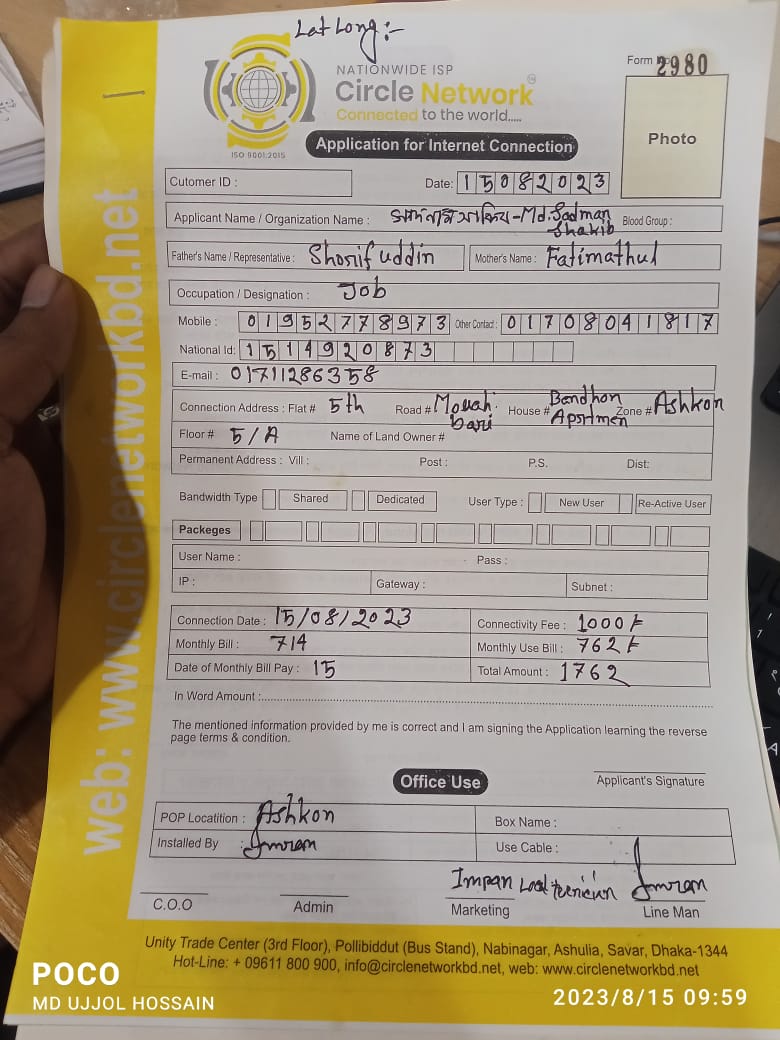 Lat Long:-
NATIONWIDE ISP
Circle Network
Connected to the world.....
ISO 9001:2015
Form No 2980
Photo
Application for Internet Connection
Cutomer ID :
Date: 15082023
Applicant Name / Organization Name : - Md. Sadman Shakib Blood Group :
Father's Name / Representative : Shorif uddin Mother's Name : Fatimathul
Occupation / Designation : Job
Mobile : 01952778973 Other Contact : 01708041817
National Id: 1514920873
E-mail : 01711286358
Connection Address : Flat # 5th Road # Mouahi bari House # Bandhon Apsrtmen Zone # Ashkon
Floor # 5/A Name of Land Owner #
Permanent Address : Vill : Post : P.S. Dist:
Bandwidth Type Shared Dedicated User Type : New User Re-Active User
Packeges
User Name : Pass :
IP : Gateway : Subnet :
Connection Date : 15/08/2023 Connectivity Fee : 1000/-
Monthly Bill : 714 Monthly Use Bill : 762/-
Date of Monthly Bill Pay : 15 Total Amount : 1762
In Word Amount :
The mentioned information provided by me is correct and I am signing the Application learning the reverse
page terms & condition.
Applicant's Signature
Office Use
POP Locatition : Ashkon Box Name :
Installed By : Imran Use Cable :
Impan Imran
C.O.O Admin Marketing Line Man
Unity Trade Center (3rd Floor), Pollibiddut (Bus Stand), Nabinagar, Ashulia, Savar, Dhaka-1344
Hot-Line: + 09611 800 900, info@circlenetworkbd.net, web: www.circlenetworkbd.net
web: www.circlenetworkbd.net
POCO
MD UJJOL HOSSAIN
2023/8/15 09:59